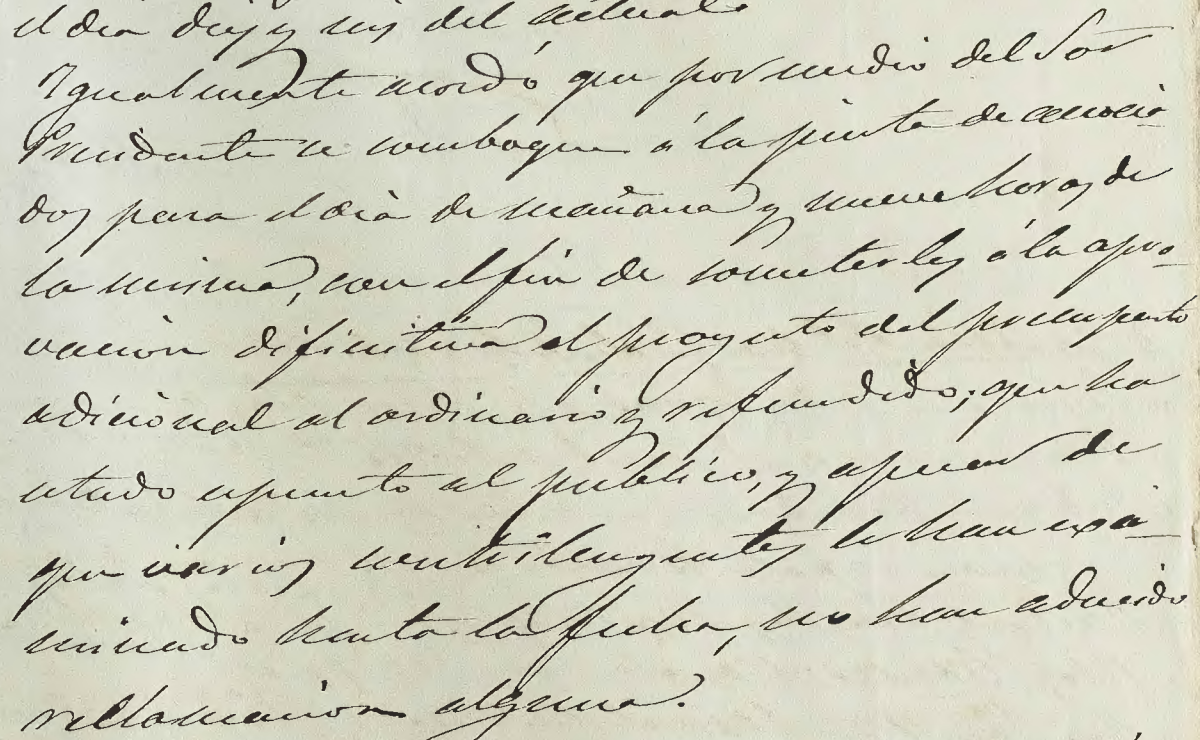 el dia diez y seis del actual.
Igualmente acordó que por medio del Sor
Presidente se comboque á la junta de asocia-
dos para el dia de mañana y nueve horas de
la misma, con el fin de someterles á la apro-
vacion difinitiva el proyecto del presupuesto
adicional al ordinario y refundido, que ha
estado espuesto al público, y apesar de
que varios contribuyentes le han exa-
minado hasta la fecha, no han aducido
reclamacion alguna.